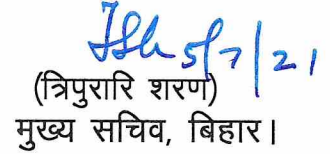 5/7/21
(त्रिपुरारि शरण)
मुख्य सचिव, बिहार।